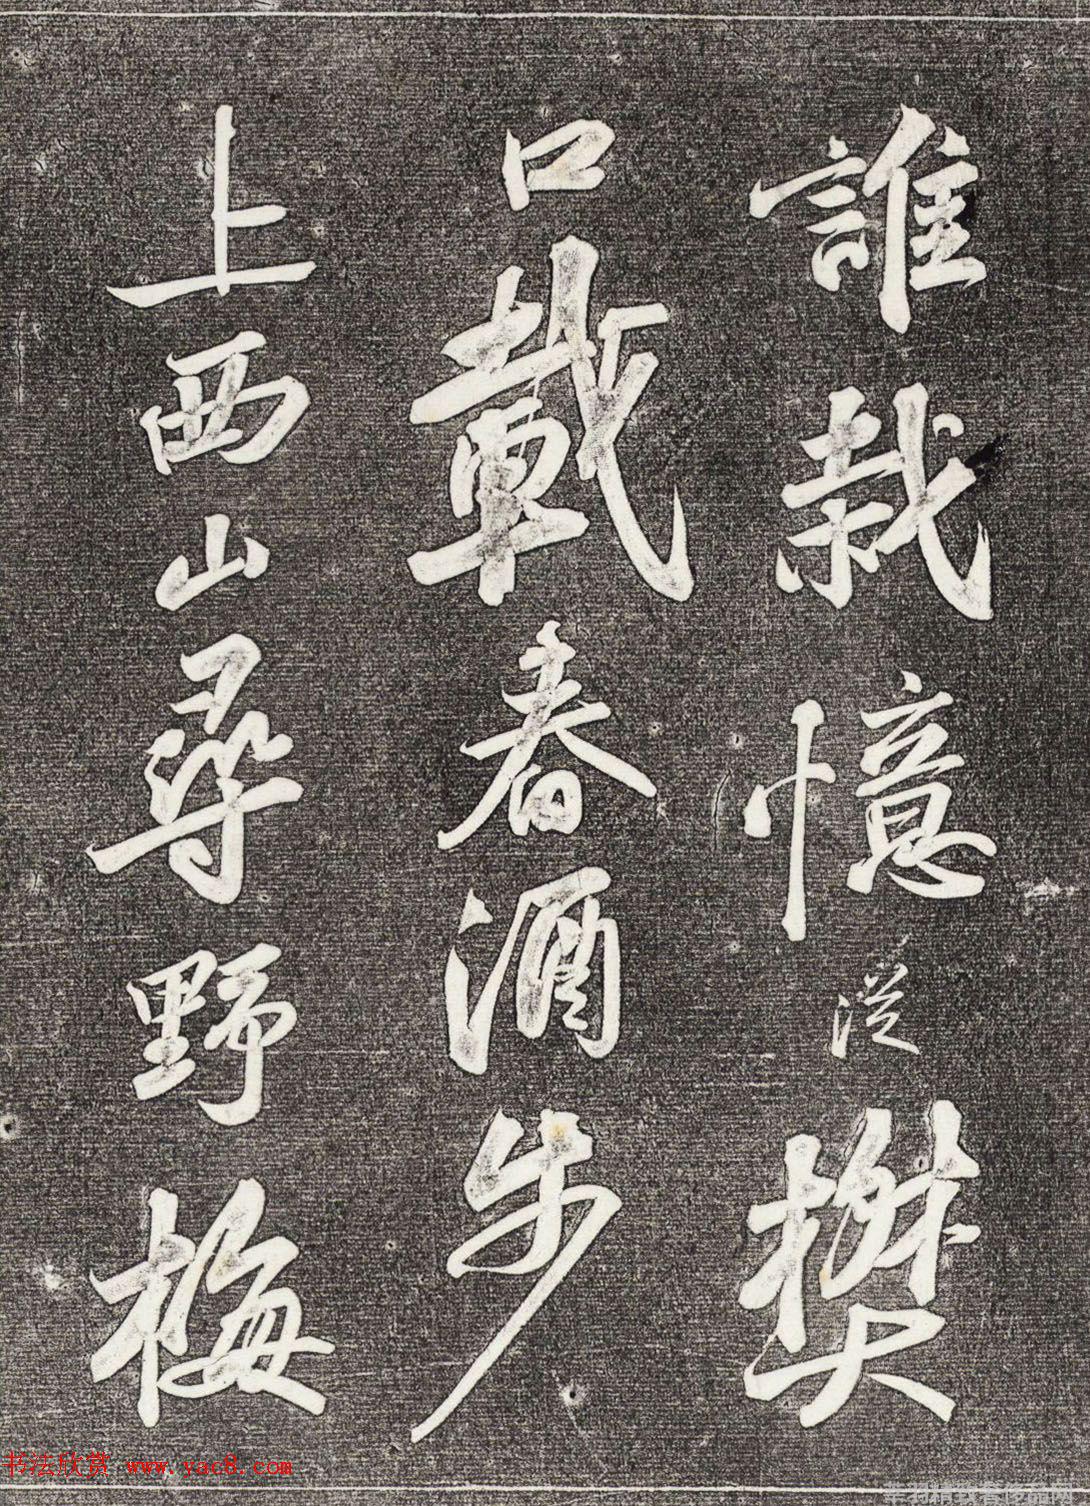 誰栽憶從樊
口載春酒步
上西山尋野梅
书法欣赏 www.yac8.com